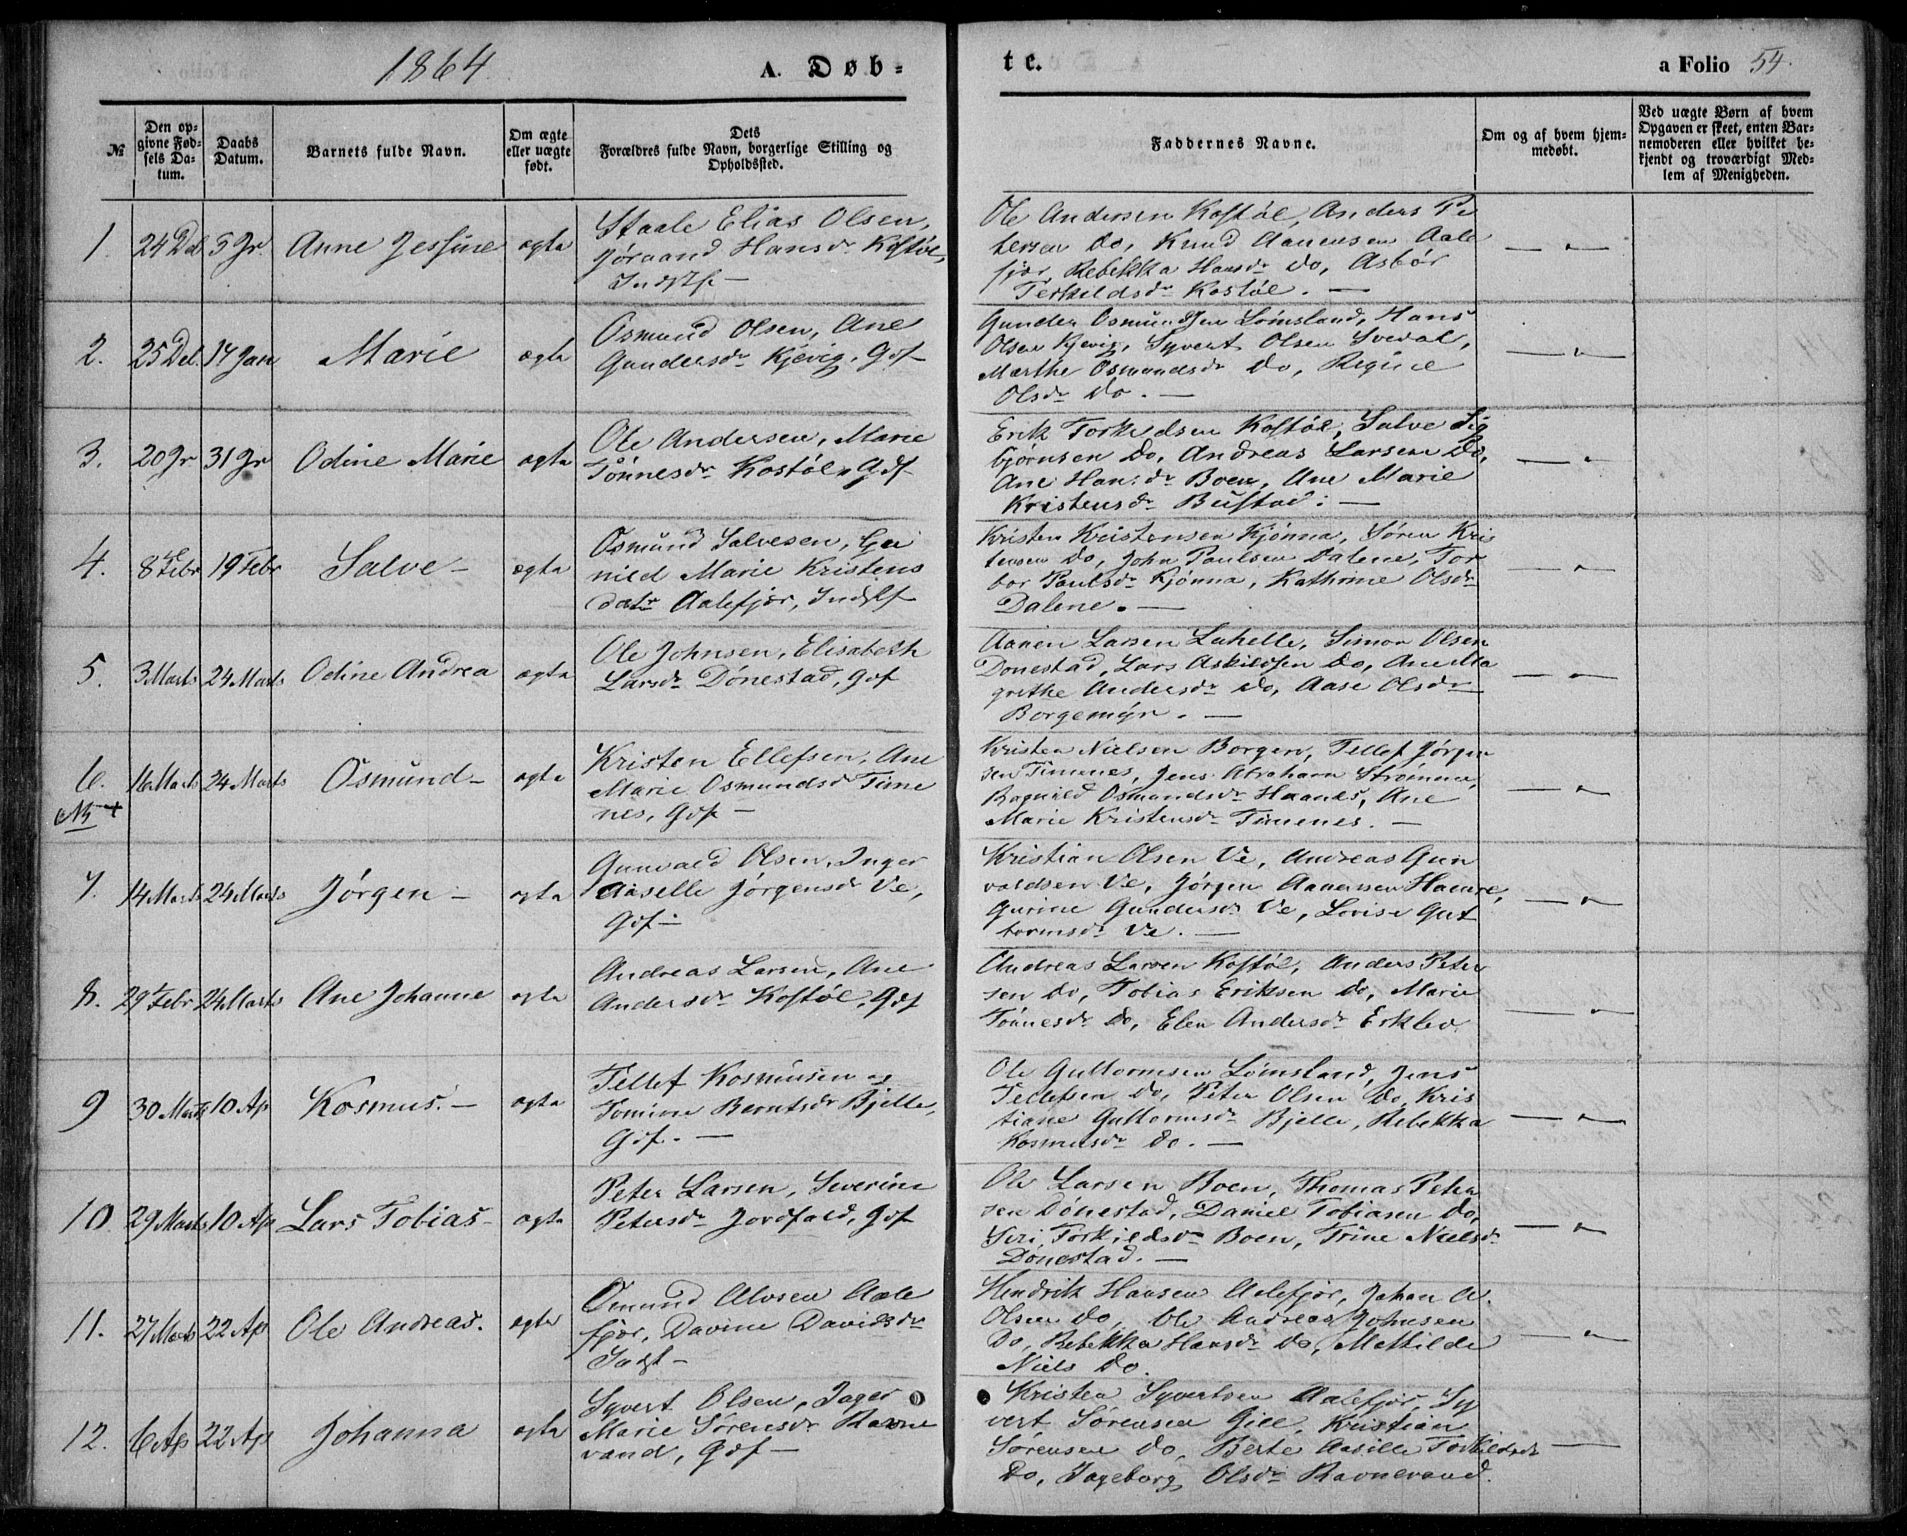 1864.
A. Døb=
te.
a Folio 54.
№
Den op=
givne Fød=
sels Da=
tum.
Daabs
Datum.
Barnets fulde Navn.
Om ægte
eller uægte
født.
Dets
Forældres fulde Navn, borgerlige Stilling og
Opholdssted.
Faddernes Navne.
Om og af hvem hjem=
medøbt.
Ved uægte Børn af hvem
Opgaven er skeet, enten Bar=
nemoderen eller hvilket be=
kjendt og troværdigt Med=
lem af Menigheden.
1. 24 Dec 5 Jr. Anne Jessine ægte
Staale Elias Olsen,
Jøraand Hansdr Kostøl,
Indst
Ole Andersen Kostøl, Anders Pe
tersen do, Knud Aanensen Aale
fjær, Rebekka Hansdr do, Asbør
Terkildsdr Kostøl. —
2. 25 Dec. 17 Jan Marie ægte
Osmund Olsen, Ane
Gundersdr Kjevig, Gdf
Gunder Osmundsen Lømsland, Hans
Olsen Kjevig, Syvert Olsen Svedal,
Marthe Osmundsdr do, Regine
Olsdr do. —
3. 20 Jr 31 Jr Odine Marie ægte
Ole Andersen, Marie
Tønnesdr Kostøl, Gdf
Erik Torkildsen Kostøl, Salve Sig
bjørnsen do, Andreas Larsen do,
Ane Hansdr Boen, Ane Marie
Kristensdr Bustad: —
4. 8 Febr 19 Febr Salve — ægte
Osmund Salvesen, Gu
nild Marie Kristens
datr Aalefjær, Indst
Kristen Kristensen Kjønna, Søren Kris
tensen do, John Paulsen Dalene, Tor
bor Paulsdr Kjønna, Kathrine Olsdr
Dalene. —
5. 3 Marts 24 Marts Odine Andrea ægte
Ole Johnsen, Elisabeth
Larsdr Dønestad, Gdf
Aanen Larsen Lahelle, Simon Olsen
Dønestad, Lars Askildsen do, Ane Ma
grethe Andersdr do, Aase Olsdr
Borgemyr. —
6. 16 Marts 24 Marts Osmund — ægte
Kristen Ellefsen, Ane
Marie Osmundsdr Time
nes, Gdf —
Kristen Nielsen Borgen, Tellef Jørgen
sen Timenes, Jens Abraham Strømme,
Ragnild Osmundsdr Haanes, Ane
Marie Kristensdr Timenes. —
7. 14 Marts 24 Marts Jørgen — ægte
Gunvald Olsen, Inger
Aaselle Jørgensdr Ve,
Gdf —
Kristian Olsen Ve, Andreas Gun
valdsen Ve, Jørgen Aanensen Hamre,
Gurine Gundersdr Ve, Lovise Gut
tormsdr Ve. —
8. 29 Febr 24 Marts Ane Johanne ægte
Andreas Larsen, Ane
Andersdr Kostøl, Gdf
Andreas Larsen Kostøl, Anders Peter
sen do, Tobias Eriksen do, Marie
Tønnesdr do, Elen Andersdr Erklev.
9 30 Marts 10 Ap Kosmus. — ægte
Tellef Kosmusen og
Tomine Berntsdr Bjelle,
Gdf. —
Ole Guttormsen Lømsland, Jens
Tellefsen do, Peter Olsen do, Kris
tiane Guttormsdr Bjelle, Rebekka
Kosmusdr do. —
10. 29 Marts 10 Ap Lars Tobias — ægte
Peter Larsen, Severine
Petersdr Jordfald, Gdf
Ole Larsen Boen, Thomas Peter
sen Dønestad, Daniel Tobiasen do,
Siri Torkildsdr Boen, Trine Nielsdr
Dønestad. —
11. 27 Marts 22 Ap Ole Andreas. ægte
Osmund Alvsen Aale
fjær, Davine Davidsdr
Indst —
Hendrik Hansen Aalefjær, Johan A.
Olsen do, Ole Andreas Johnsen
do, Rebekka Hansdr do, Mathilde
Niels do.
12. 6 Ap 22 Ap Johanna ægte
Syvert Olsen, Inger
Marie Sørensdr Ravne
vand, Gdf —
Kristen Syvertsen Aalefjær, Sy
vert Sørensen Gill, Kristian
Sørensen do, Berte Aasille Torkildsdr
do, Ingeborg Olsdr Ravnevand.